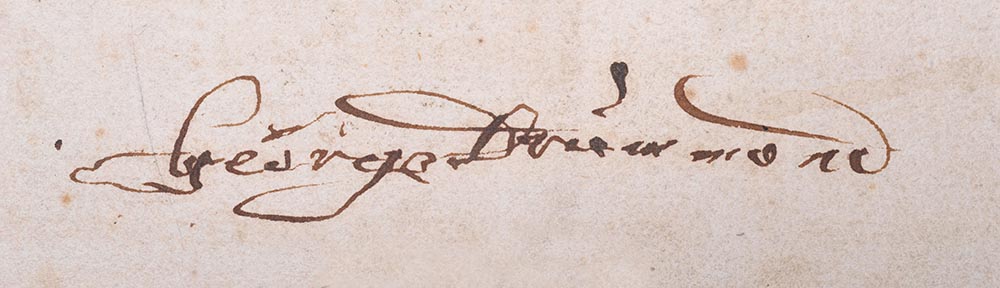 George Drummond